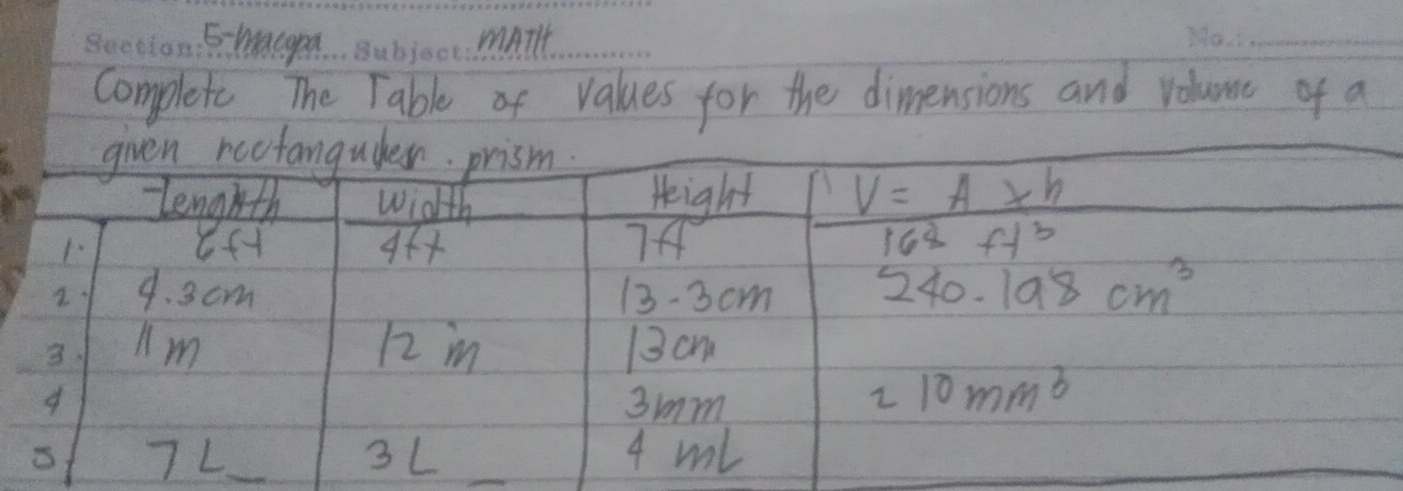 Section: 5-macopa Subject: MATH No.:
Complete The Table of values for the dimensions and volume of a
given rectangular prism.
Lenghth Width Height V = A x h
1. 6ft 4ft 7ft 168 ft³
2. 4.3cm 13.3cm 240.198 cm³
3. 11 m 12 in 13cm
4 3mm 210mm³
5. 7L 3L 4 mL